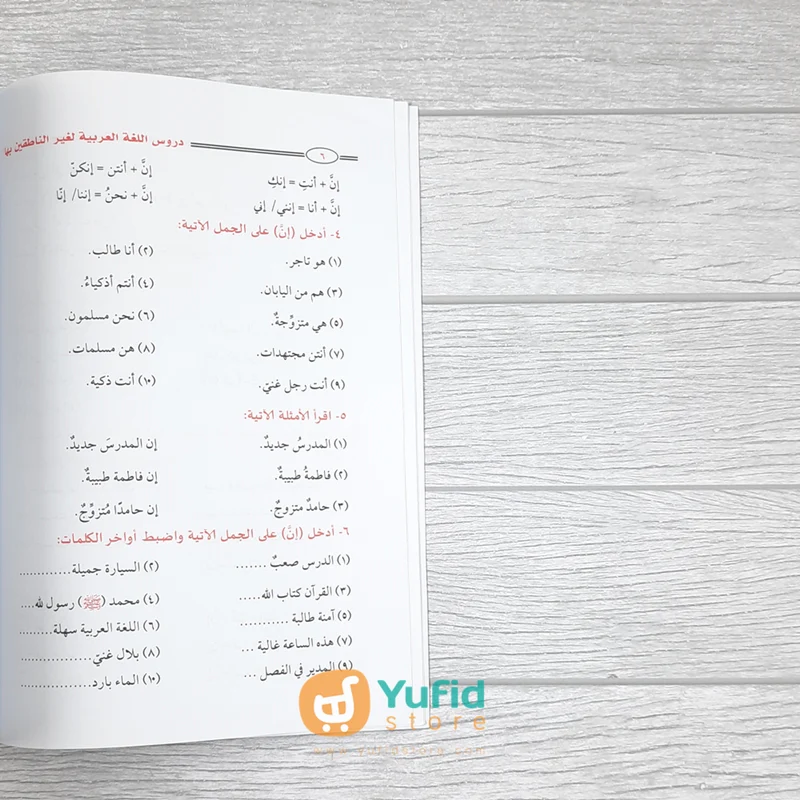 دروس اللغة العربية لغير الناطقين بها
٦
إنَّ + أنتِ = إنكِ إنَّ + أنتن = إنكنّ
إنَّ + أنا = إنني/ إني إنَّ + نحنُ = إننا/ إنّا
٤- أدخل (إنَّ) على الجمل الآتية:
(١) هو تاجر. (٢) أنا طالب.
(٣) هم من اليابان. (٤) أنتم أذكياءُ.
(٥) هي متزوِّجةٌ. (٦) نحن مسلمون.
(٧) أنتن مجتهدات. (٨) هن مسلمات.
(٩) أنت رجل غنيّ. (١٠) أنت ذكية.
٥- اقرأ الأمثلة الآتية:
(١) المدرسُ جديدٌ. إن المدرسَ جديدٌ.
(٢) فاطمةُ طبيبةٌ. إن فاطمة طبيبةٌ.
(٣) حامدٌ متزوجٌ. إن حامدًا مُتزوِّجٌ.
٦- أدخل (إنَّ) على الجمل الآتية واضبط أواخر الكلمات:
(١) الدرس صعبٌ ....... (٢) السيارة جميلة ............
(٣) القرآن كتاب الله..... (٤) محمد (ﷺ) رسول لله....
(٥) آمنة طالبة ........... (٦) اللغة العربية سهلة.........
(٧) هذه الساعة غالية ... (٨) بلال غنيّ.................
(٩) المدير في الفصل ... (١٠) الماء بارد.................
Yufid
store